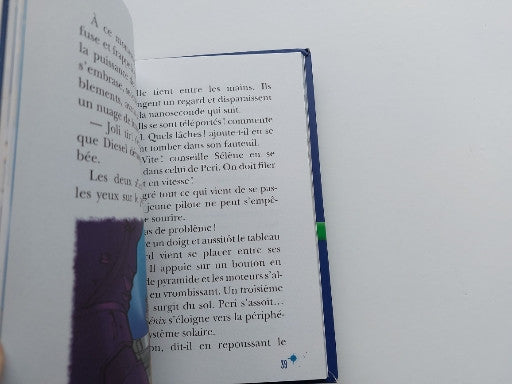 À ce mome
fuse et frappe
la puissance
s'embrase,
blements,
un nuage
— Joli tir
que Diesel
bée.
Les deux
les yeux sur
lle tient entre les mains. Ils
ngent un regard et disparaissent
la nanoseconde qui suit.
Ils se sont téléportés ! commente
l. Quels lâches ! ajoute-t-il en se
nt tomber dans son fauteuil.
Vite ! conseille Sélène en se
dans celui de Peri. On doit filer
et en vitesse !
gré tout ce qui vient de se pas-
jeune pilote ne peut s'empê-
e sourire.
as de problème !
e un doigt et aussitôt le tableau
rd vient se placer entre ses
Il appuie sur un bouton en
de pyramide et les moteurs s'al-
en vrombissant. Un troisième
surgit du sol. Peri s'assoit…
énix s'éloigne vers la périphé-
ystème solaire.
on, dit-il en repoussant le
39